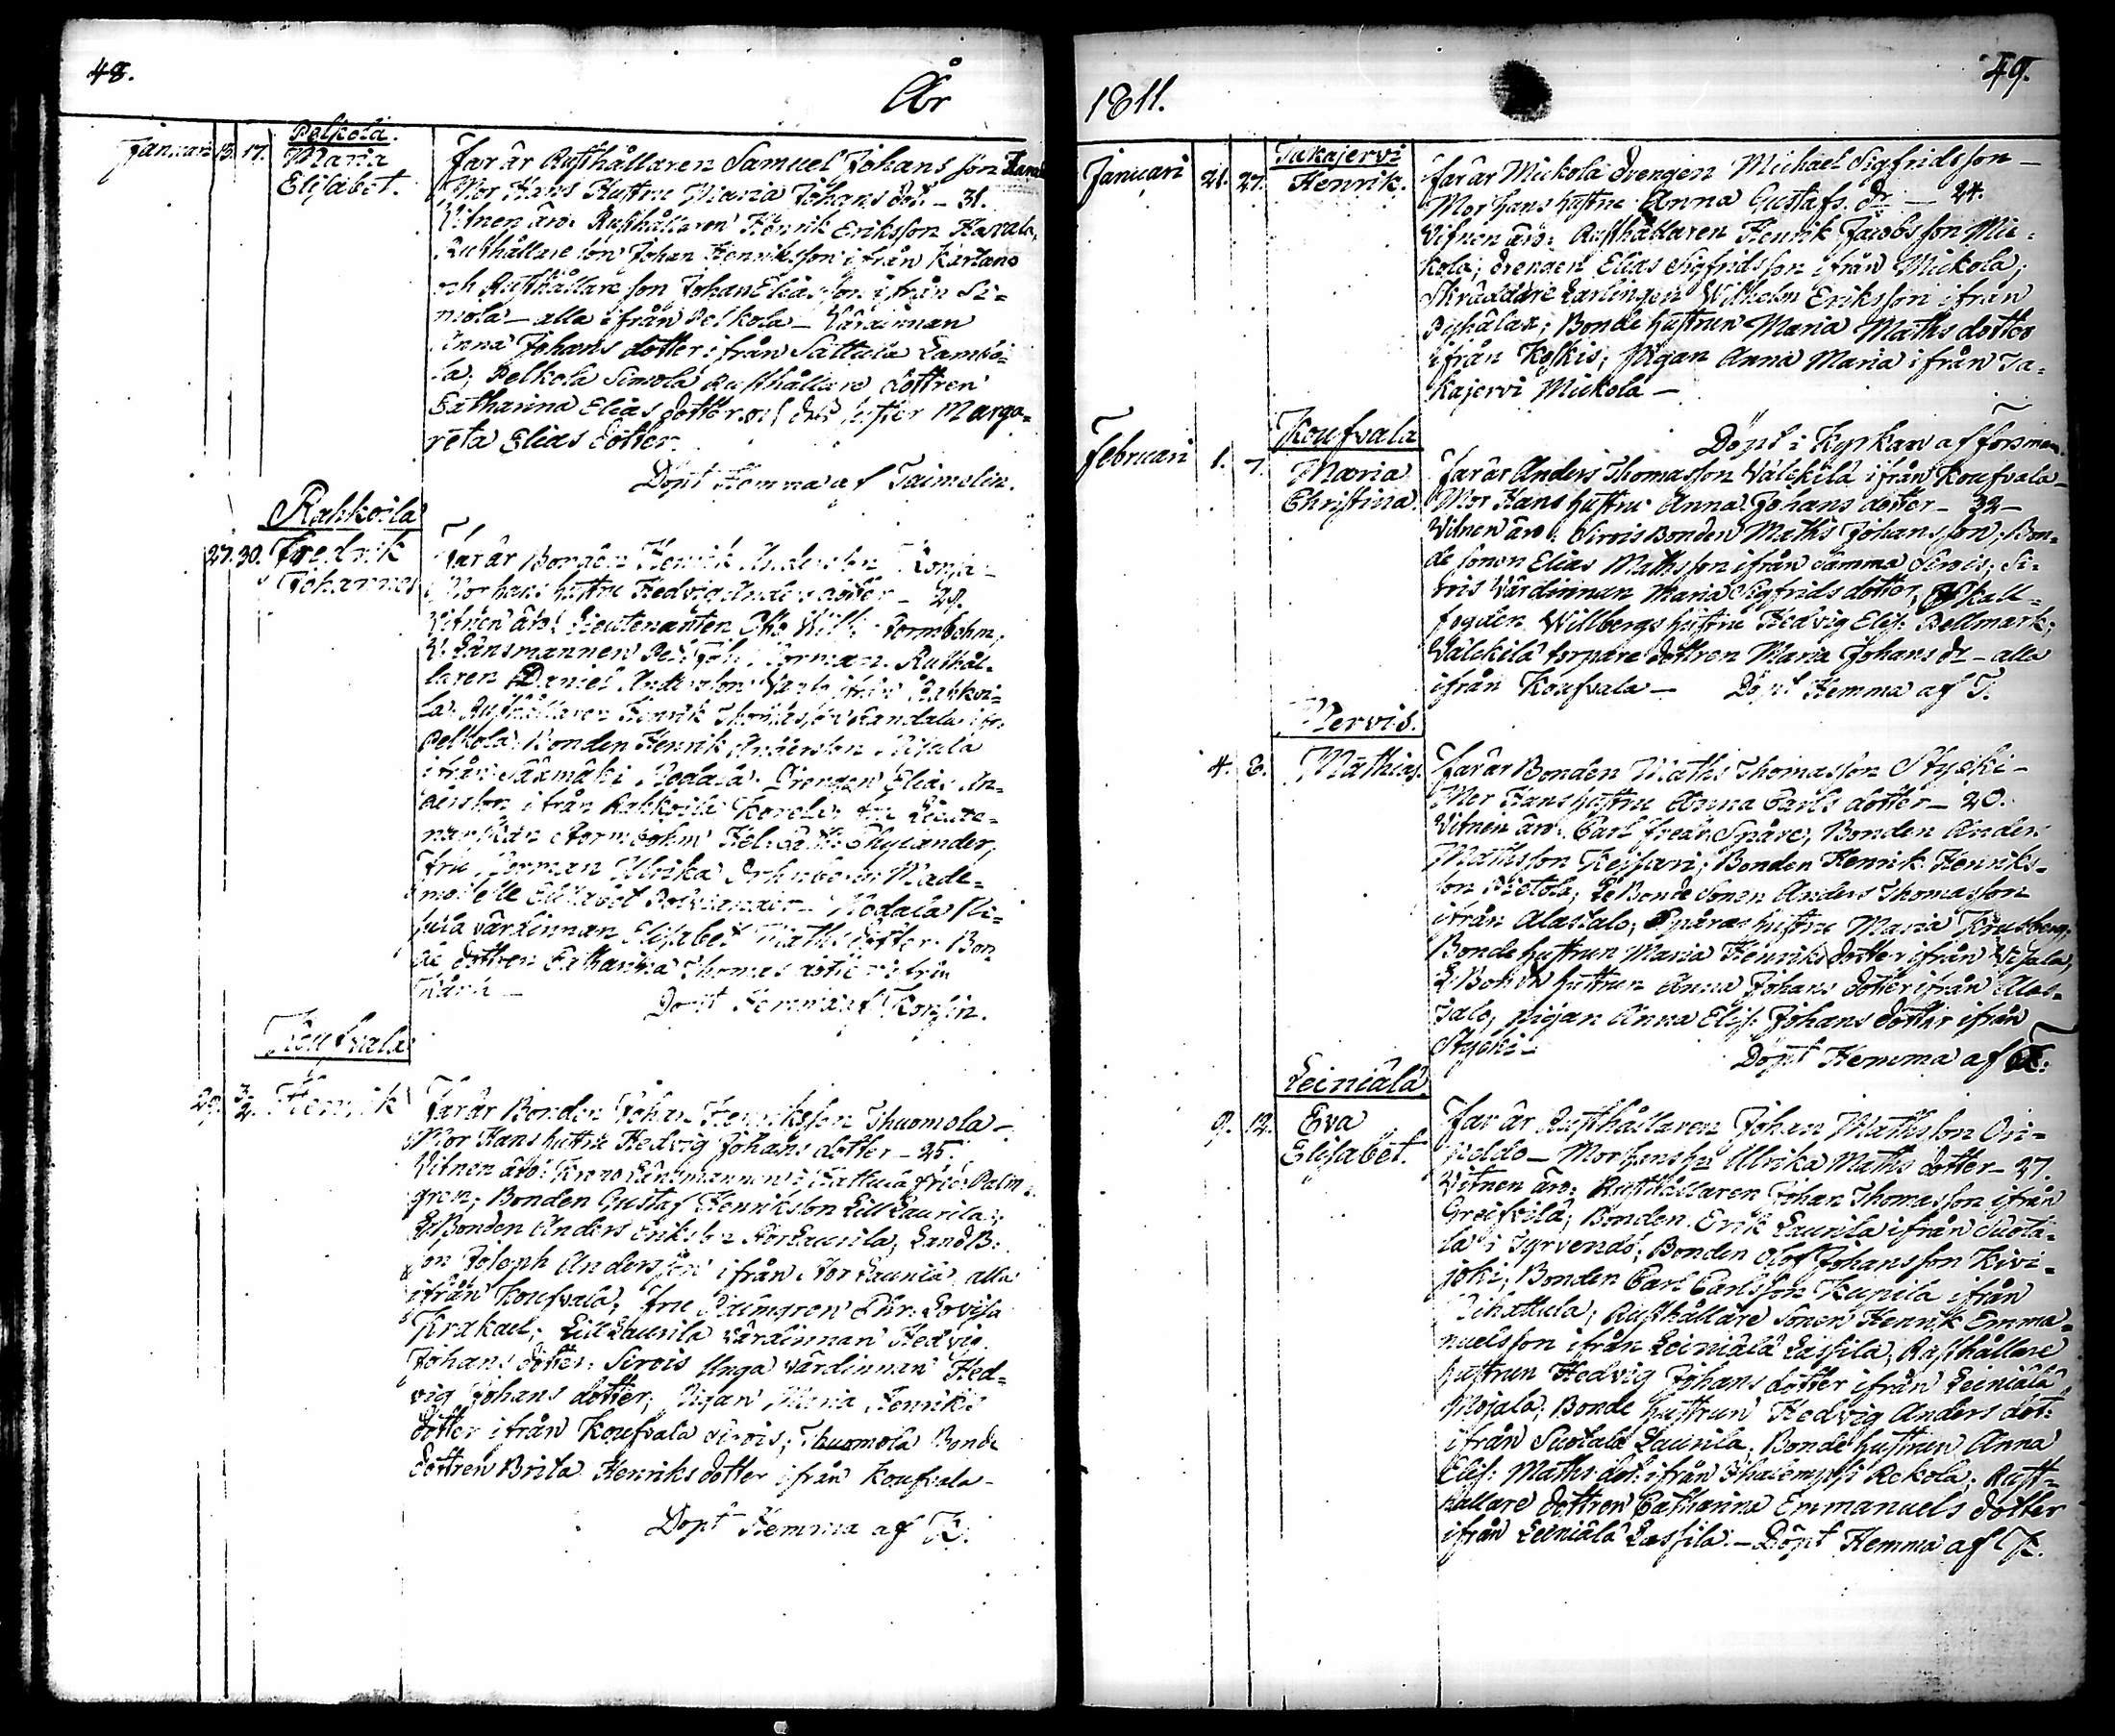 48.
År
Pelkola.
Januari 13. 17. Maria
Elisabet.
Far är Rusthållaren Samuel Johansson
Mor Hans Hustru Maria Johans dot. - 31.
Vitnen äro: Rusthållaren Henrik Eriksson Havala,
Rusthållare son Johan Henriksson ifrån Kartano
och Rusthållare son Johan Eliasson ifrån Si=
mola - alla ifrån Pelkola - Värdinnan
Anna Johans dotter ifrån Sattula Lambo=
la; Pelkola Simola Rusthållare dottren
Catharina Elias dotter och des syster Marga=
reta Elias dotter.
Döpt Hemma af Taimelin.
Rahkoila
27. 30. Fredrik
Johannes
Far är Bonden Henrik Andersson
Mor hans hustru Hedvig Anders dotter - 28.
Vitnen äro: Lieutenanten Otto Wilh. Stormbohm;
V. Länsmannen Norman. Rusthål=
laren Daniel Andersson ifrån Rahkoi=
la. Rusthållaren Henrik Thomasson Randala ifr.
Pelkola; Bonden Henrik Andersson
ifrån Sääxmäki Drengen Elias An=
dersson ifrån Rahkoila fru Lieute=
nanskan Stormbohm Hel. Cath. Thylander,
Fru Norman Ulrika Made=
moiselle Elisabet
värdinnan Elisabet Maths dotter. Bon
de dottren Catharina Thomas dotter ifrån
Döpt Hemma af Konsin.
Koufvala
29. 3/2. Henrik
Far är Bonden Johan Henriksson Thuomola -
Mor Hans hustru Hedvig Johans dotter - 25.
Vitnen äro: Krono Länsmannen i Hattula Fric. Palm=
gren; Bonden Gustaf Henriksson Lill Laurila;
L. Bonden Anders Eriksson Stor Laurila; Land B.
son Joseph Andersson ifrån Stor Laurila alla
ifrån Koufvala; Fru Palmgren Chr. Lovisa
Krakael; Lill Laurila värdinnan Hedvig
Johans dotter. Sirois Unga värdinnan Hed=
vig Johans dotter; Pigan Maria Henriks
dotter ifrån Koufvala Sirois; Thuomola Bonde
dottren Brita Henriks dotter ifrån Koufvala -
Döpt Hemma af K.
1811.
49.
Takajervi
Januari 21. 27. Henrik.
Far är Mickola drengen Michael Sigfridsson -
Mor hans hustru Anna Gustafs. dr - 24.
Vitnen äro: Rusthållaren Henrik Jacobsson Mic=
kola; drengen Elias Sigfridsson ifrån Mickola;
Skräddare Lärlingen Wilhelm Eriksson ifrån
Bonde hustrun Maria Maths dotter
ifrån Koskis; Pigan Anna Maria ifrån Ta=
kajervi Mickola -
Döpt i Kyrkan af Forsman.
Koufvala
Februari 1. 7. Maria
Christina
Far är Anders Thomasson Välckilä ifrån Koufvala -
Mor Hans hustru Anna Johans dotter - 32 -
Vitnen äro: Sirois Bonden Maths Johansson; Bon=
de sonen Elias Mathsson ifrån samma Sirois; Si=
rois Värdinnan Maria Sigfrids dotter;
fogden Willbergs hustru Hedvig Elis. Bellmark;
Välckilä torpare dottren Maria Johans dr - alla
ifrån Koufvala - Döpt Hemma af T.
Nervis.
4. 8. Mathias.
Far är Bonden Maths Thomasson Stycki -
Mor Hans hustru Anna Carls dotter - 20.
Vitnen äro: Carl Fredr. Spåre; Bonden Anders
Mathsson Keisari; Bonden Henrik Henriks=
son Pietola; L. Bonde Sonen Anders Thomasson
ifrån Alastalo; Spåres hustru Maria Krusberg;
Bonde hustrun Maria Henriks dotter ifrån
L. Bonde hustrun Anna Johans dotter ifrån Alas=
talo; pigan Anna Elis. Johans dotter ifrån
Stycki - Döpt Hemma af T.
Leiniälä
9. 12. Eva
Elisabet.
Far är Rusthållaren Johan Mathsson On=
peldo - Mor hans hu Ulrika Maths dotter - 27.
Vitnen äro: Rusthållaren Johan Thomasson ifrån
Greifvilä; Bonden Erik Laurila ifrån Suota=
la i Tyrvendö; Bonden Olof Johansson Kivi=
joki; Bonden Carl Carlsson Kupila ifrån
Vihattula; Rusthållare Sonen Henrik Emma=
nuelsson ifrån Leiniälä Lassila; Rusthållare
hustrun Hedvig Johans dotter ifrån Leiniälä
Mojala; Bonde hustrun Hedvig Anders dot.
ifrån Suotala Laurila; Bonde hustrun Anna
Elis. Maths dot. ifrån Ihalempi Rekola; Rust=
hållare dottren Catharina Emmanuels dotter
ifrån Leiniälä Lassila. - Döpt Hemma af K.